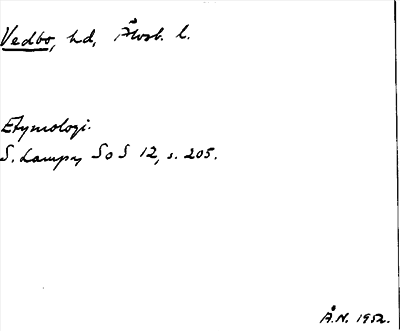 Vedbo, hd, Älvsb. l.
Etymologi.
S. Lampa SoS 12, s. 205.
Å.N. 1952.